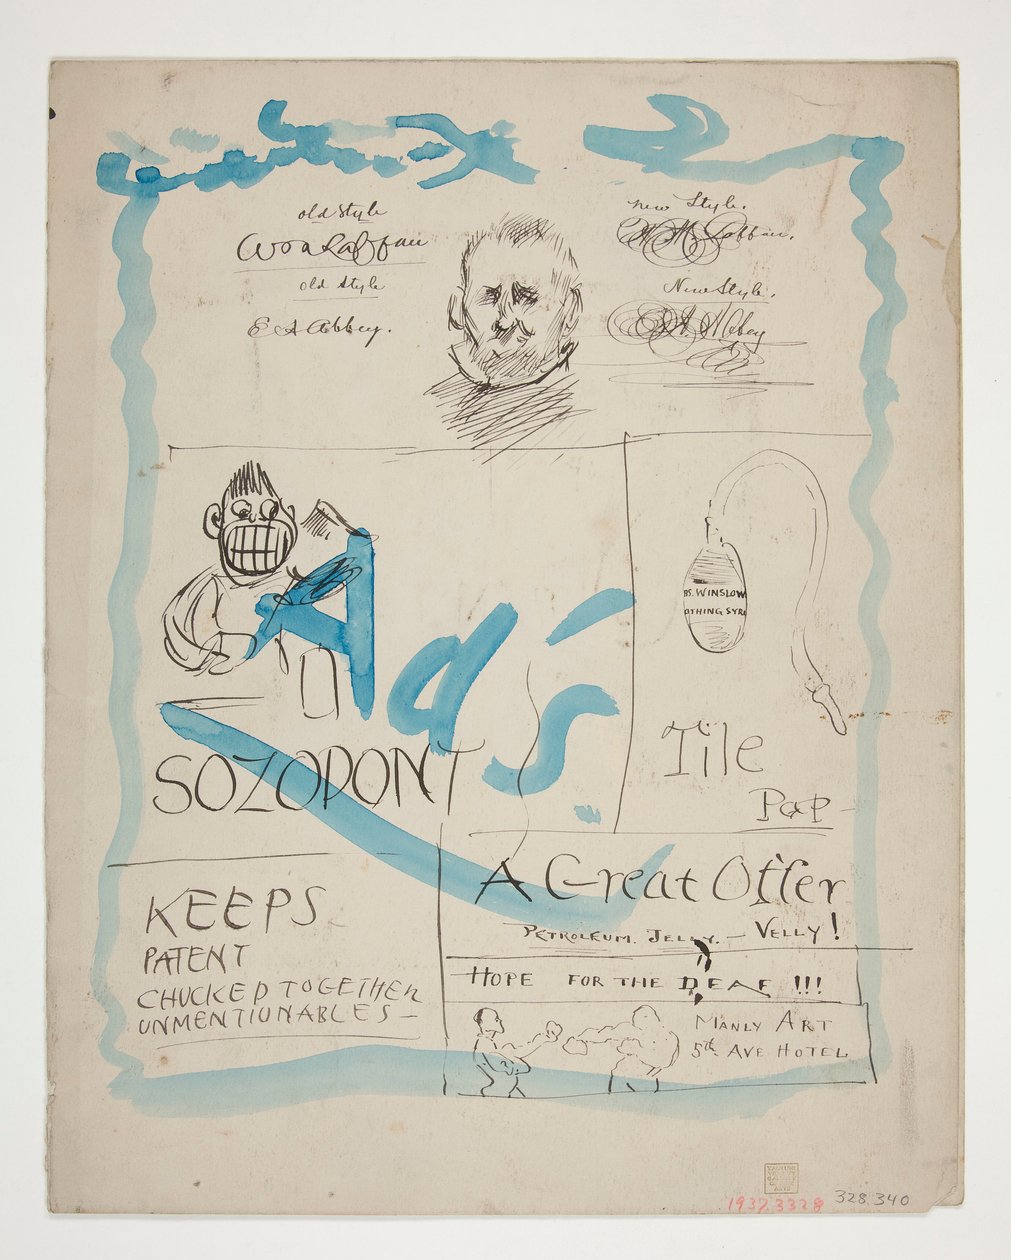 old style
old style
E A Abbey.
new Style.
W. M. Laffan.
New Style.
E A Abbey
Ad's.
SOZODONT
RS. WINSLOW
OTHING SYR
Tile
Pap
KEEPS
PATENT
CHUCKED TOGETHER
UNMENTIONABLES—
A Great Offer
PETROLEUM. JELLY. — VELLY!
HOPE FOR THE DEAF !!!
MANLY ART
5th AVE HOTEL
1937.3328
328.340